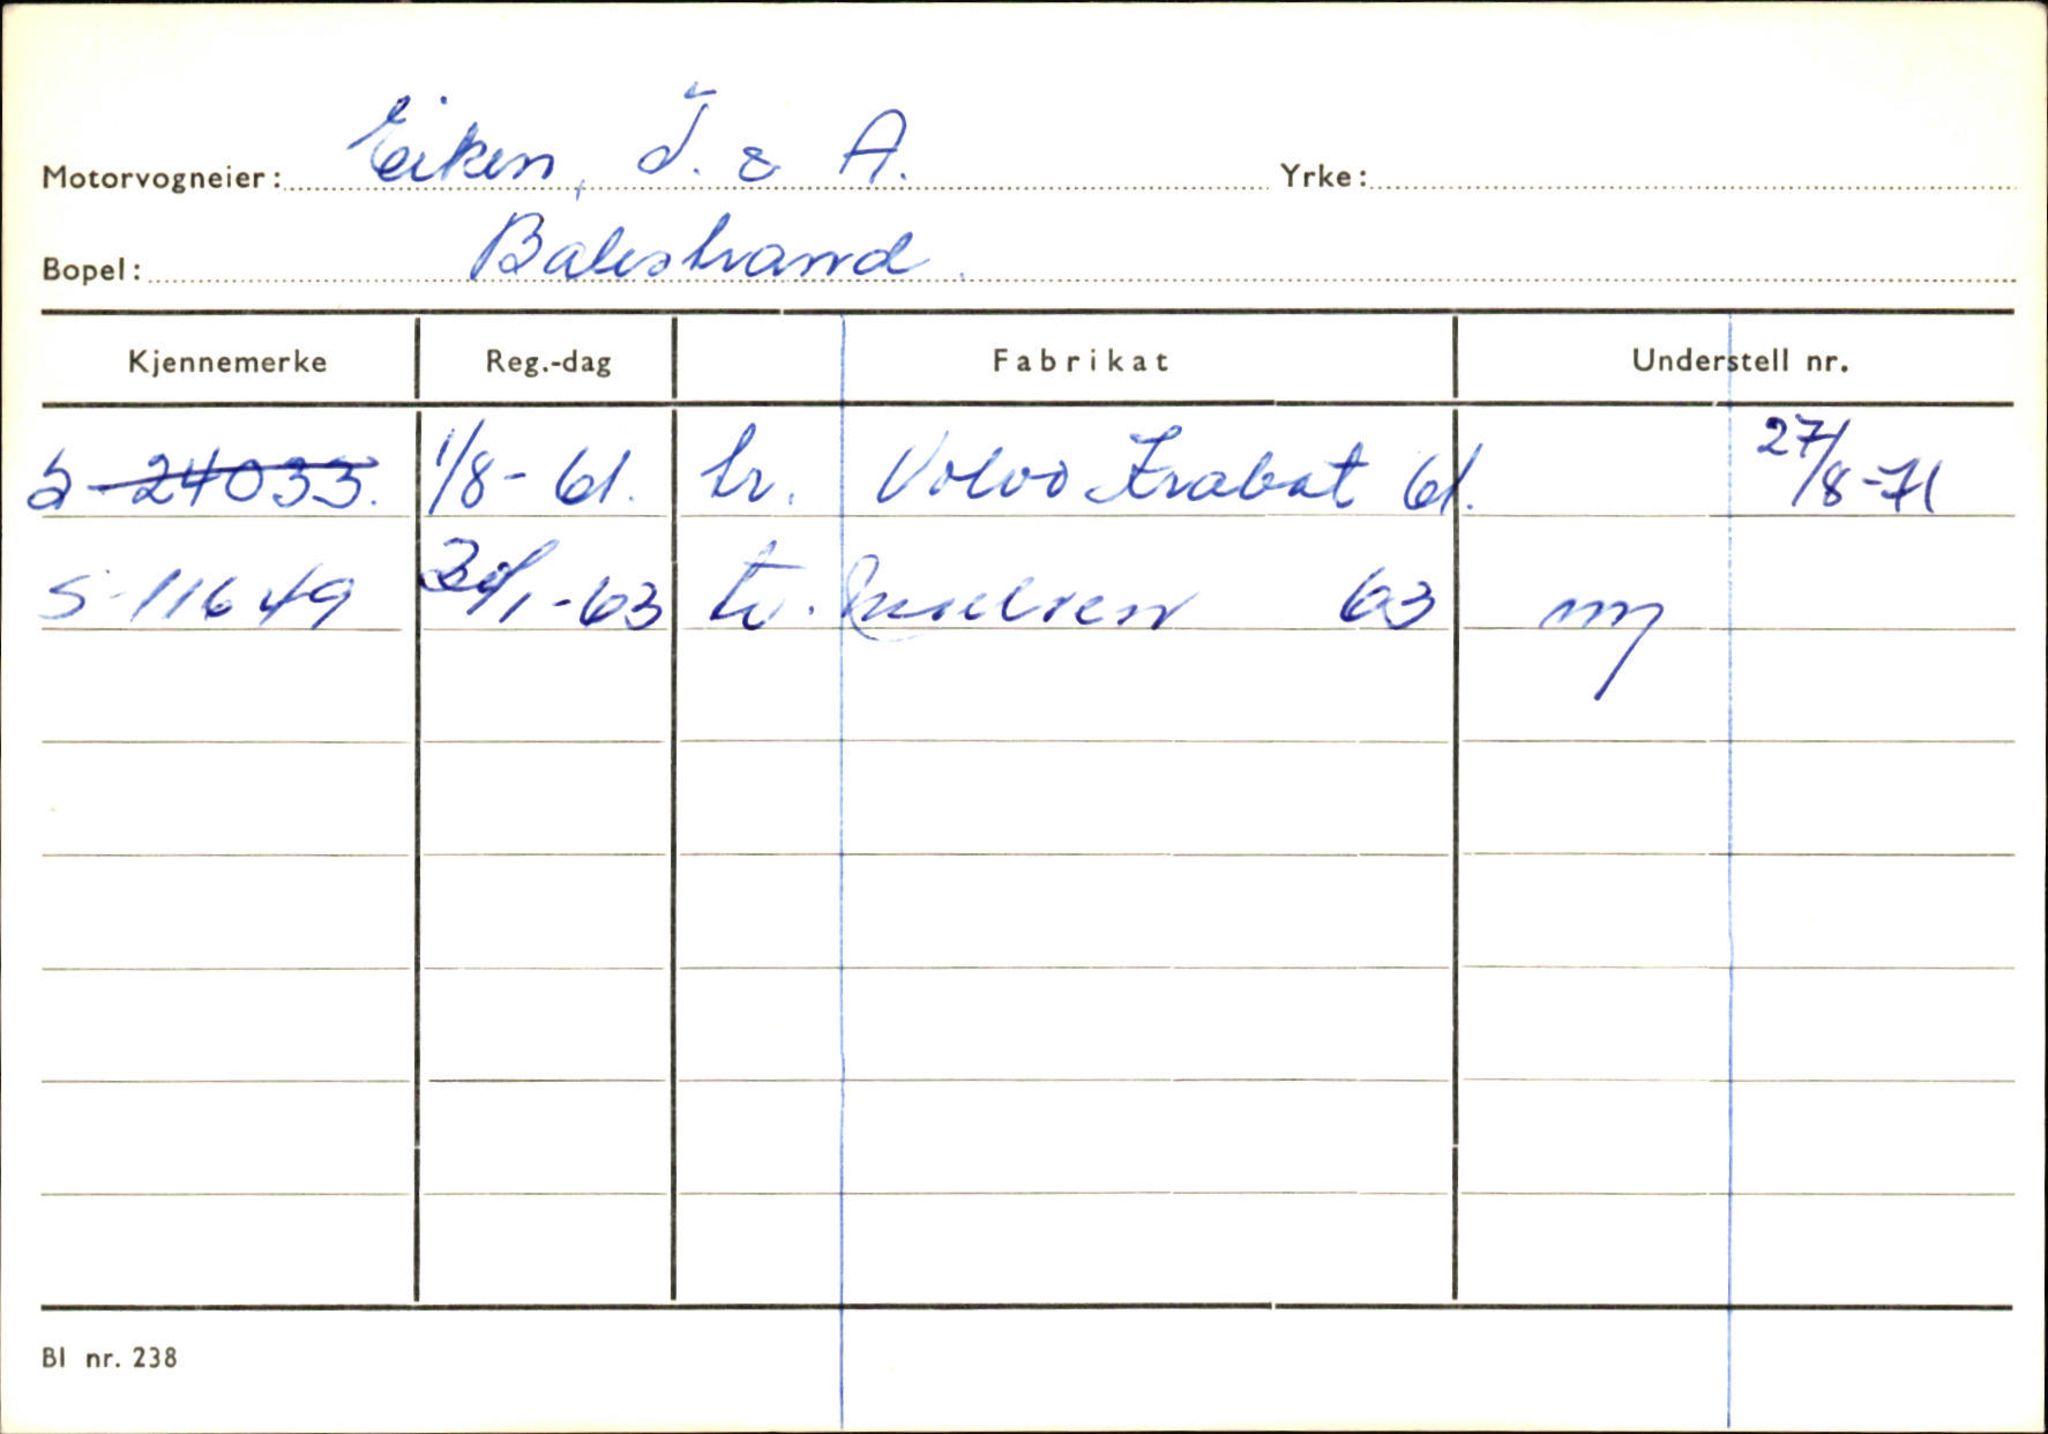 Motorvogneier: Eiken, J. & A. Yrke:
Bopel: Balestrand.
Kjennemerke Reg.-dag Fabrikat Understell nr.
S-24033. 1/8-61. tr. Volvo Krabat 61. 27/8-71
S-11649 /1-63 tv. 63 ny
Bl nr. 238